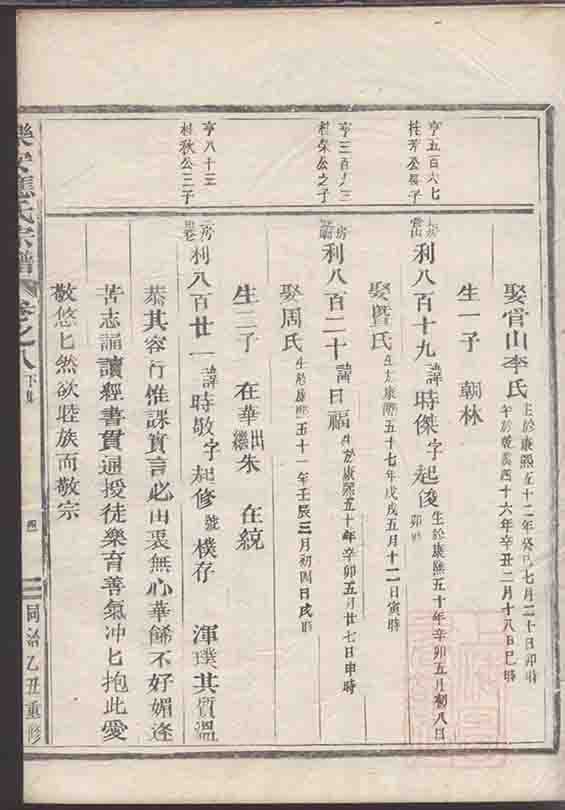 娶官山李氏 生於康熙五十二年癸巳七月二十日卯時
卒於乾隆四十六年辛丑二月十八日巳時
生一子 朝林
亨五百六七
桂芳公長子
利八百十九 諱時傑字起俊 生於康熙五十年辛卯五月初八日
卯時
娶暨氏 生於康熙五十七年戊戌五月十二日寅時
亨三百九三
桂榮公之子
利八百二十 諱日福 生於康熙五十年辛卯五月廿七日申時
娶周氏 生於康熙五十一年壬辰三月初四日戌時
生三子 在華 出繼 朱 在統
亨八十三
桂秋公三子
利八百廿一 諱時敬字起修號樸存 渾璞其質溫
恭其容行惟課實言必由衷無心華餙不好媚逢
苦志誦讀經書貫通授徒樂育善氣冲匕抱此愛
敬悠匕然欲睦族而敬宗
樂安應氏宗譜 卷之八 下集 四 同治乙丑重修